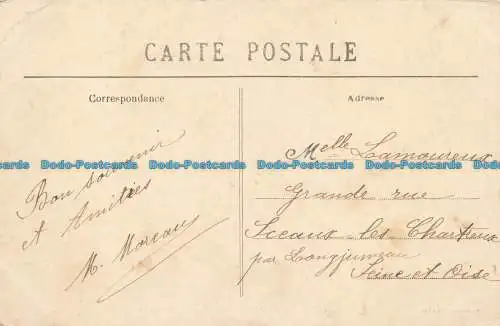 CARTE POSTALE
Correspondance
Adresse
Bon souvenir
et Amitiés
M. Moreau
Melle Lamoureux
Grande rue
Sceaux-les-Chartreux
par Longjumeau
Seine et Oise
Dodo-Postcards Dodo-Postcards Dodo-Postcards Dodo-Postcards Dodo-Postcards
Dodo-Postcards Dodo-Postcards Dodo-Postcards Dodo-Postcards Dodo-Postcards